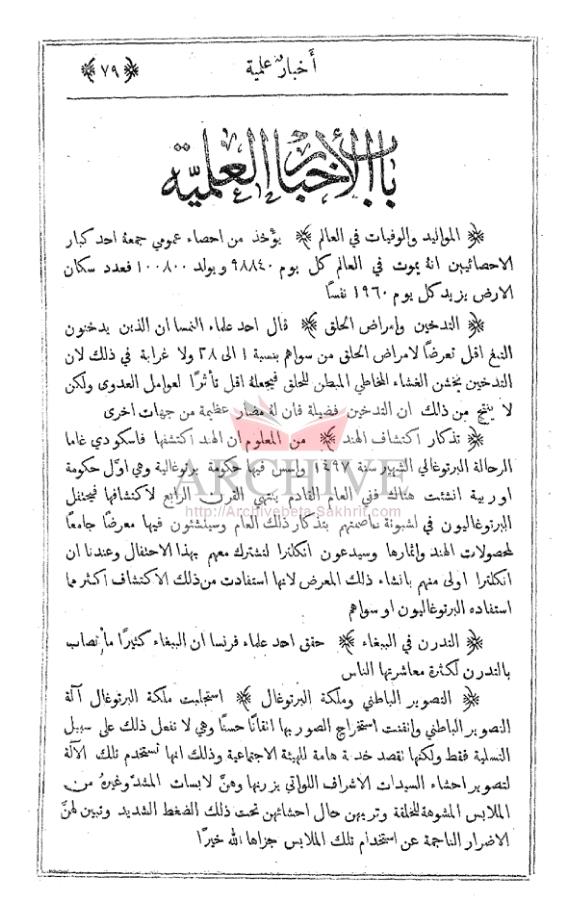 أخبار علمية
﴿ ٧٩ ﴾
باب الأخبار العلمية
﴿ المواليد والوفيات في العالم ﴾ يؤخذ من احصاء عمومي جمعهُ احد كبار
الاحصائيين انهُ يموت في العالم كل يوم ٩٨٨٤٠ ويولد ١٠٠٨٠٠ فعدد سكان
الارض يزيد كل يوم ١٩٦٠ نفسًا
﴿ التدخين وامراض الحلق ﴾ قال احد علماء النمسا ان الذين يدخنون
التبغ اقل تعرضًا لامراض الحلق من سواهم بنسبة ١ الى ٢٨ ولا غرابة في ذلك لان
التدخين يخشن الغشاء المخاطي المبطن للحلق فيجعلهُ اقل تأثرًا لعوامل العدوى ولكن
لا ينتج من ذلك ان التدخين فضيلة فان لهُ مضار عظيمة من جهات اخرى
﴿ تذكار اكتشاف الهند ﴾ من المعلوم ان الهند اكتشفها فاسكو دي غاما
الرحالة البرتوغالي الشهير سنة ١٤٩٧ واسس فيها حكومة برتوغالية وهي اوّل حكومة
اوربية انشئت هناك ففي العام القادم ينتهي القرن الرابع لاكتشافها فيحتفل
البرتوغاليون في اشبونة عاصمتهم بتذكار ذلك العام وسينشئون فيها معرضًا جامعًا
لمحصولات الهند واثمارها وسيدعون انكلترا لتشترك معهم بهذا الاحتفال وعندنا ان
انكلترا اولى منهم بانشاء ذلك المعرض لانها استفادت من ذلك الاكتشاف أكثر مما
استفاده البرتوغاليون او سواهم
﴿ التدرن في الببغاء ﴾ حقق احد علماء فرنسا ان الببغاء كثيرًا ما تصاب
بالتدرن لكثرة معاشرتها الناس
﴿ التصوير الباطني وملكة البرتوغال ﴾ استجلبت ملكة البرتوغال آلة
التصوير الباطني واتقنت استخراج الصور بها اتقانًا حسنًا وهي لا تفعل ذلك على سبيل
التسلية فقط ولكنها تقصد خدمة هامة للهيئة الاجتماعية وذلك انها تستخدم تلك الآلة
لتصوير احشاء السيدات الاشراف اللواتي يزرنها وهنَّ لابسات المشد وغيرهُ من
الملابس المشوهة للخلقة وتريهن حال احشائهن تحت ذلك الضغط الشديد وتبين لهنَّ
الاضرار الناجمة عن استخدام تلك الملابس جزاها الله خيرًا
ARCHIVE
http://Archivebeta.Sakhrit.com